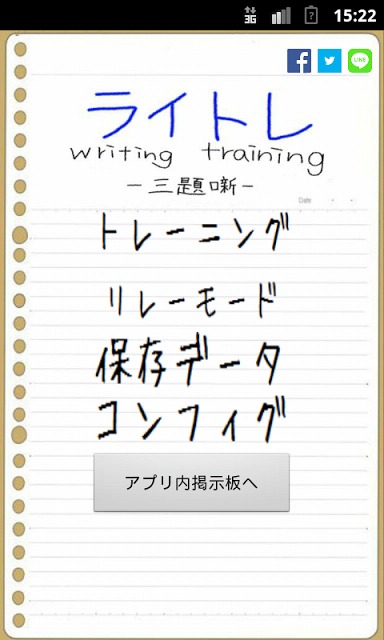 3G 15:22
LINE
ライトレ
writing training
-三題噺-
Date
トレーニング
リレーモード
保存データ
コンフィグ
アプリ内掲示板へ